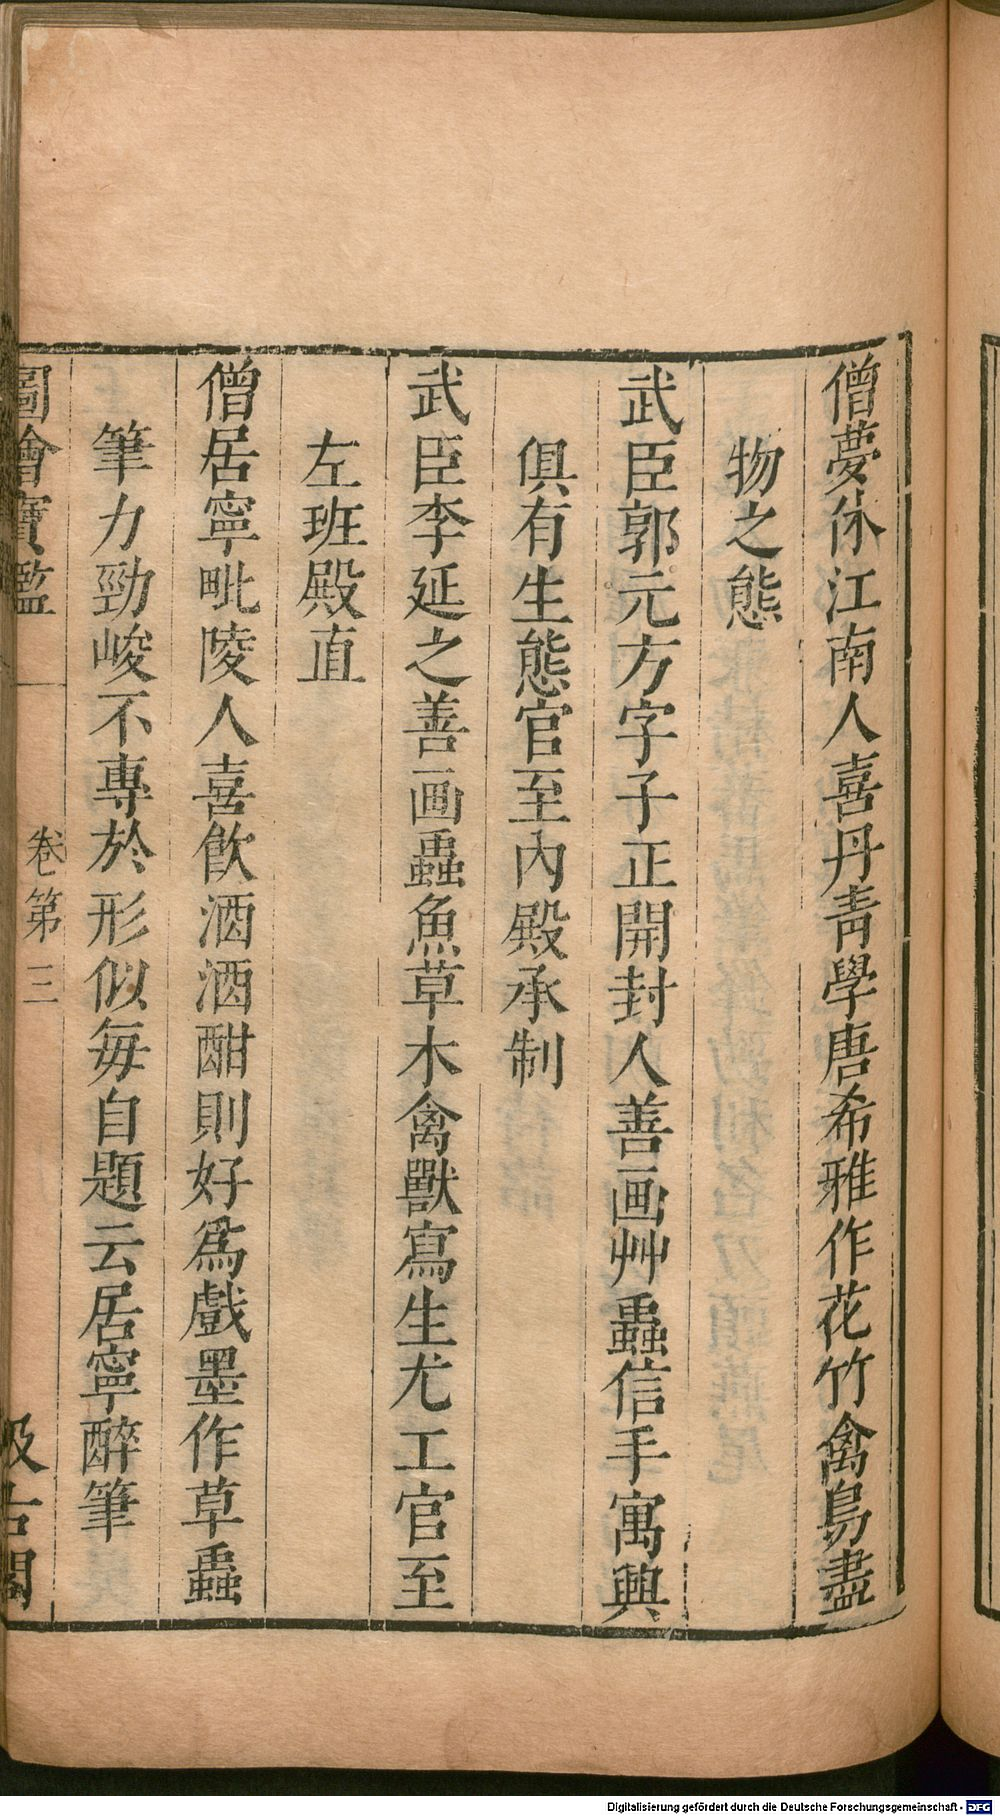 僧夢休江南人喜丹青學唐希雅作花竹禽鳥盡
物之態
武臣郭元方字子正開封人善画艸蟲信手寓興
俱有生態官至內殿承制
武臣李延之善画蟲魚草木禽獸寫生尤工官至
左班殿直
僧居寧毗陵人喜飲酒酒酣則好爲戲墨作草蟲
筆力勁峻不專於形似每自題云居寧醉筆
圖繪寶鑑 卷第三 汲古閣
Digitalisierung gefördert durch die Deutsche Forschungsgemeinschaft - DFG